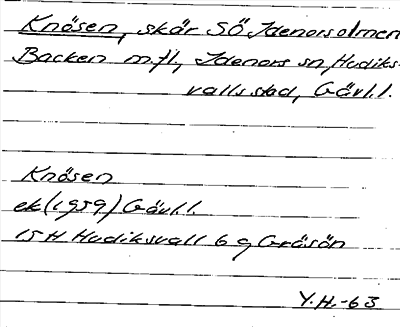 Knösen, skär SÖ Idenorsolmen
Backen m.fl., Idenors sn, Hudiks-
valls stad, Gävl.l.
Knösen
ek (1959) Gävl.l.
15 H Hudiksvall 6 g Gråsön
Y.H.-63